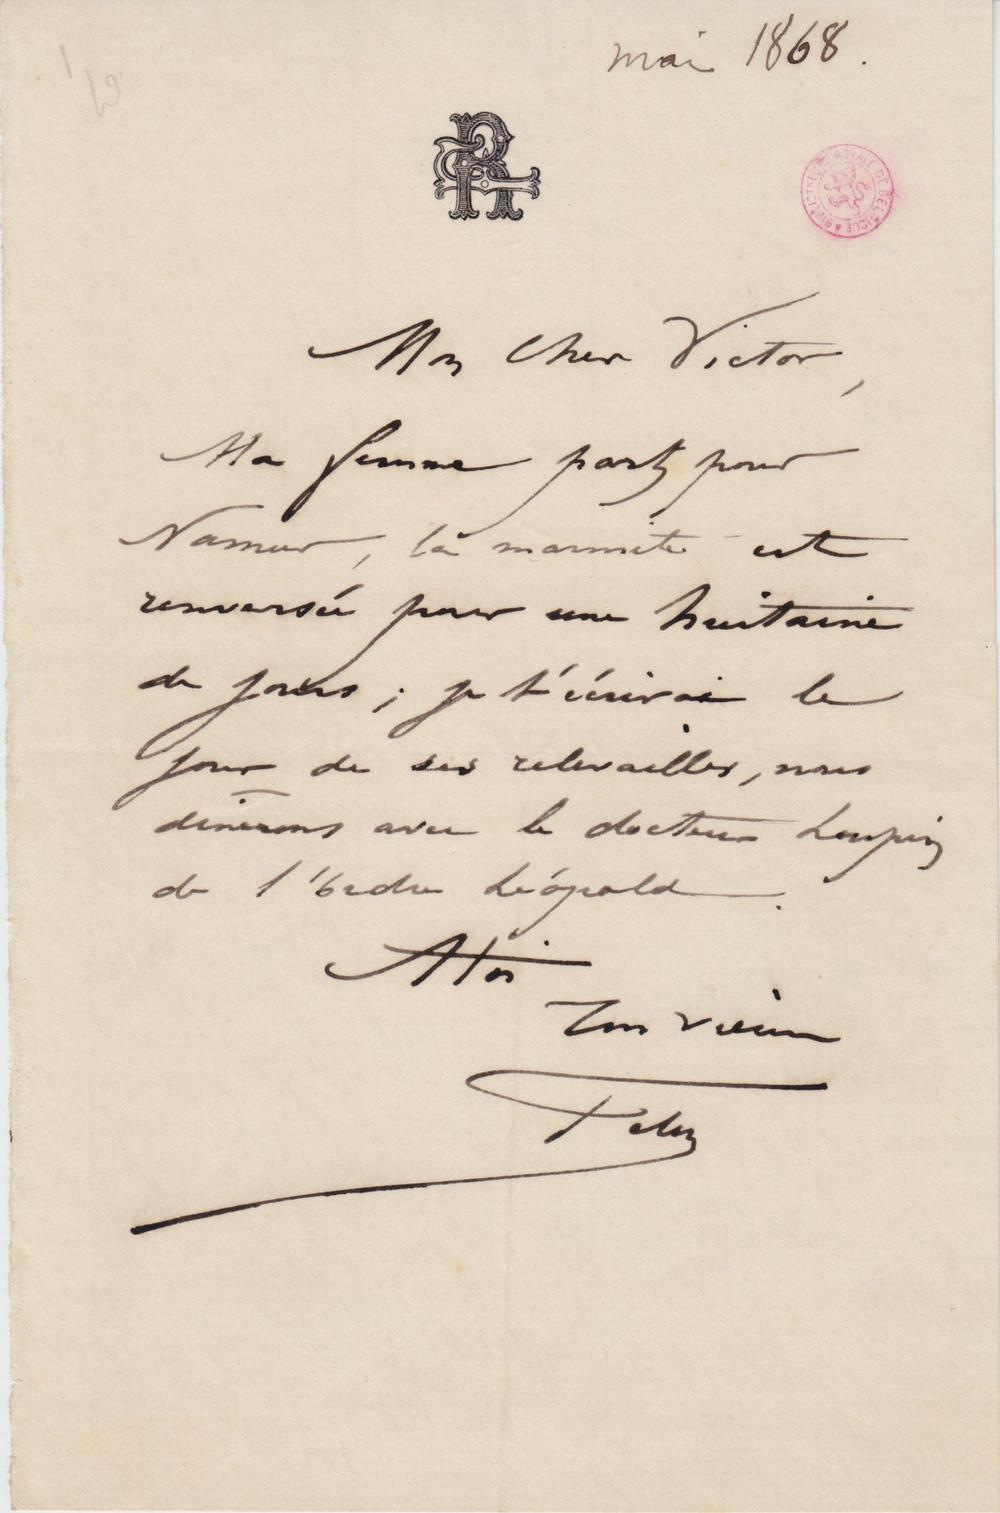 mai 1868.
BIBLIOTHÈQUE ROYALE DE BELGIQUE
Mon Cher Victor,
Ma femme part pour
Namur, la marmite est
renversée pour une huitaine
de jours ; je t'écrirai le
jour de ses relevailles, nous
dinerons avec le docteur
de l'Ordre Léopold.
A toi
Ton vieux
Fely